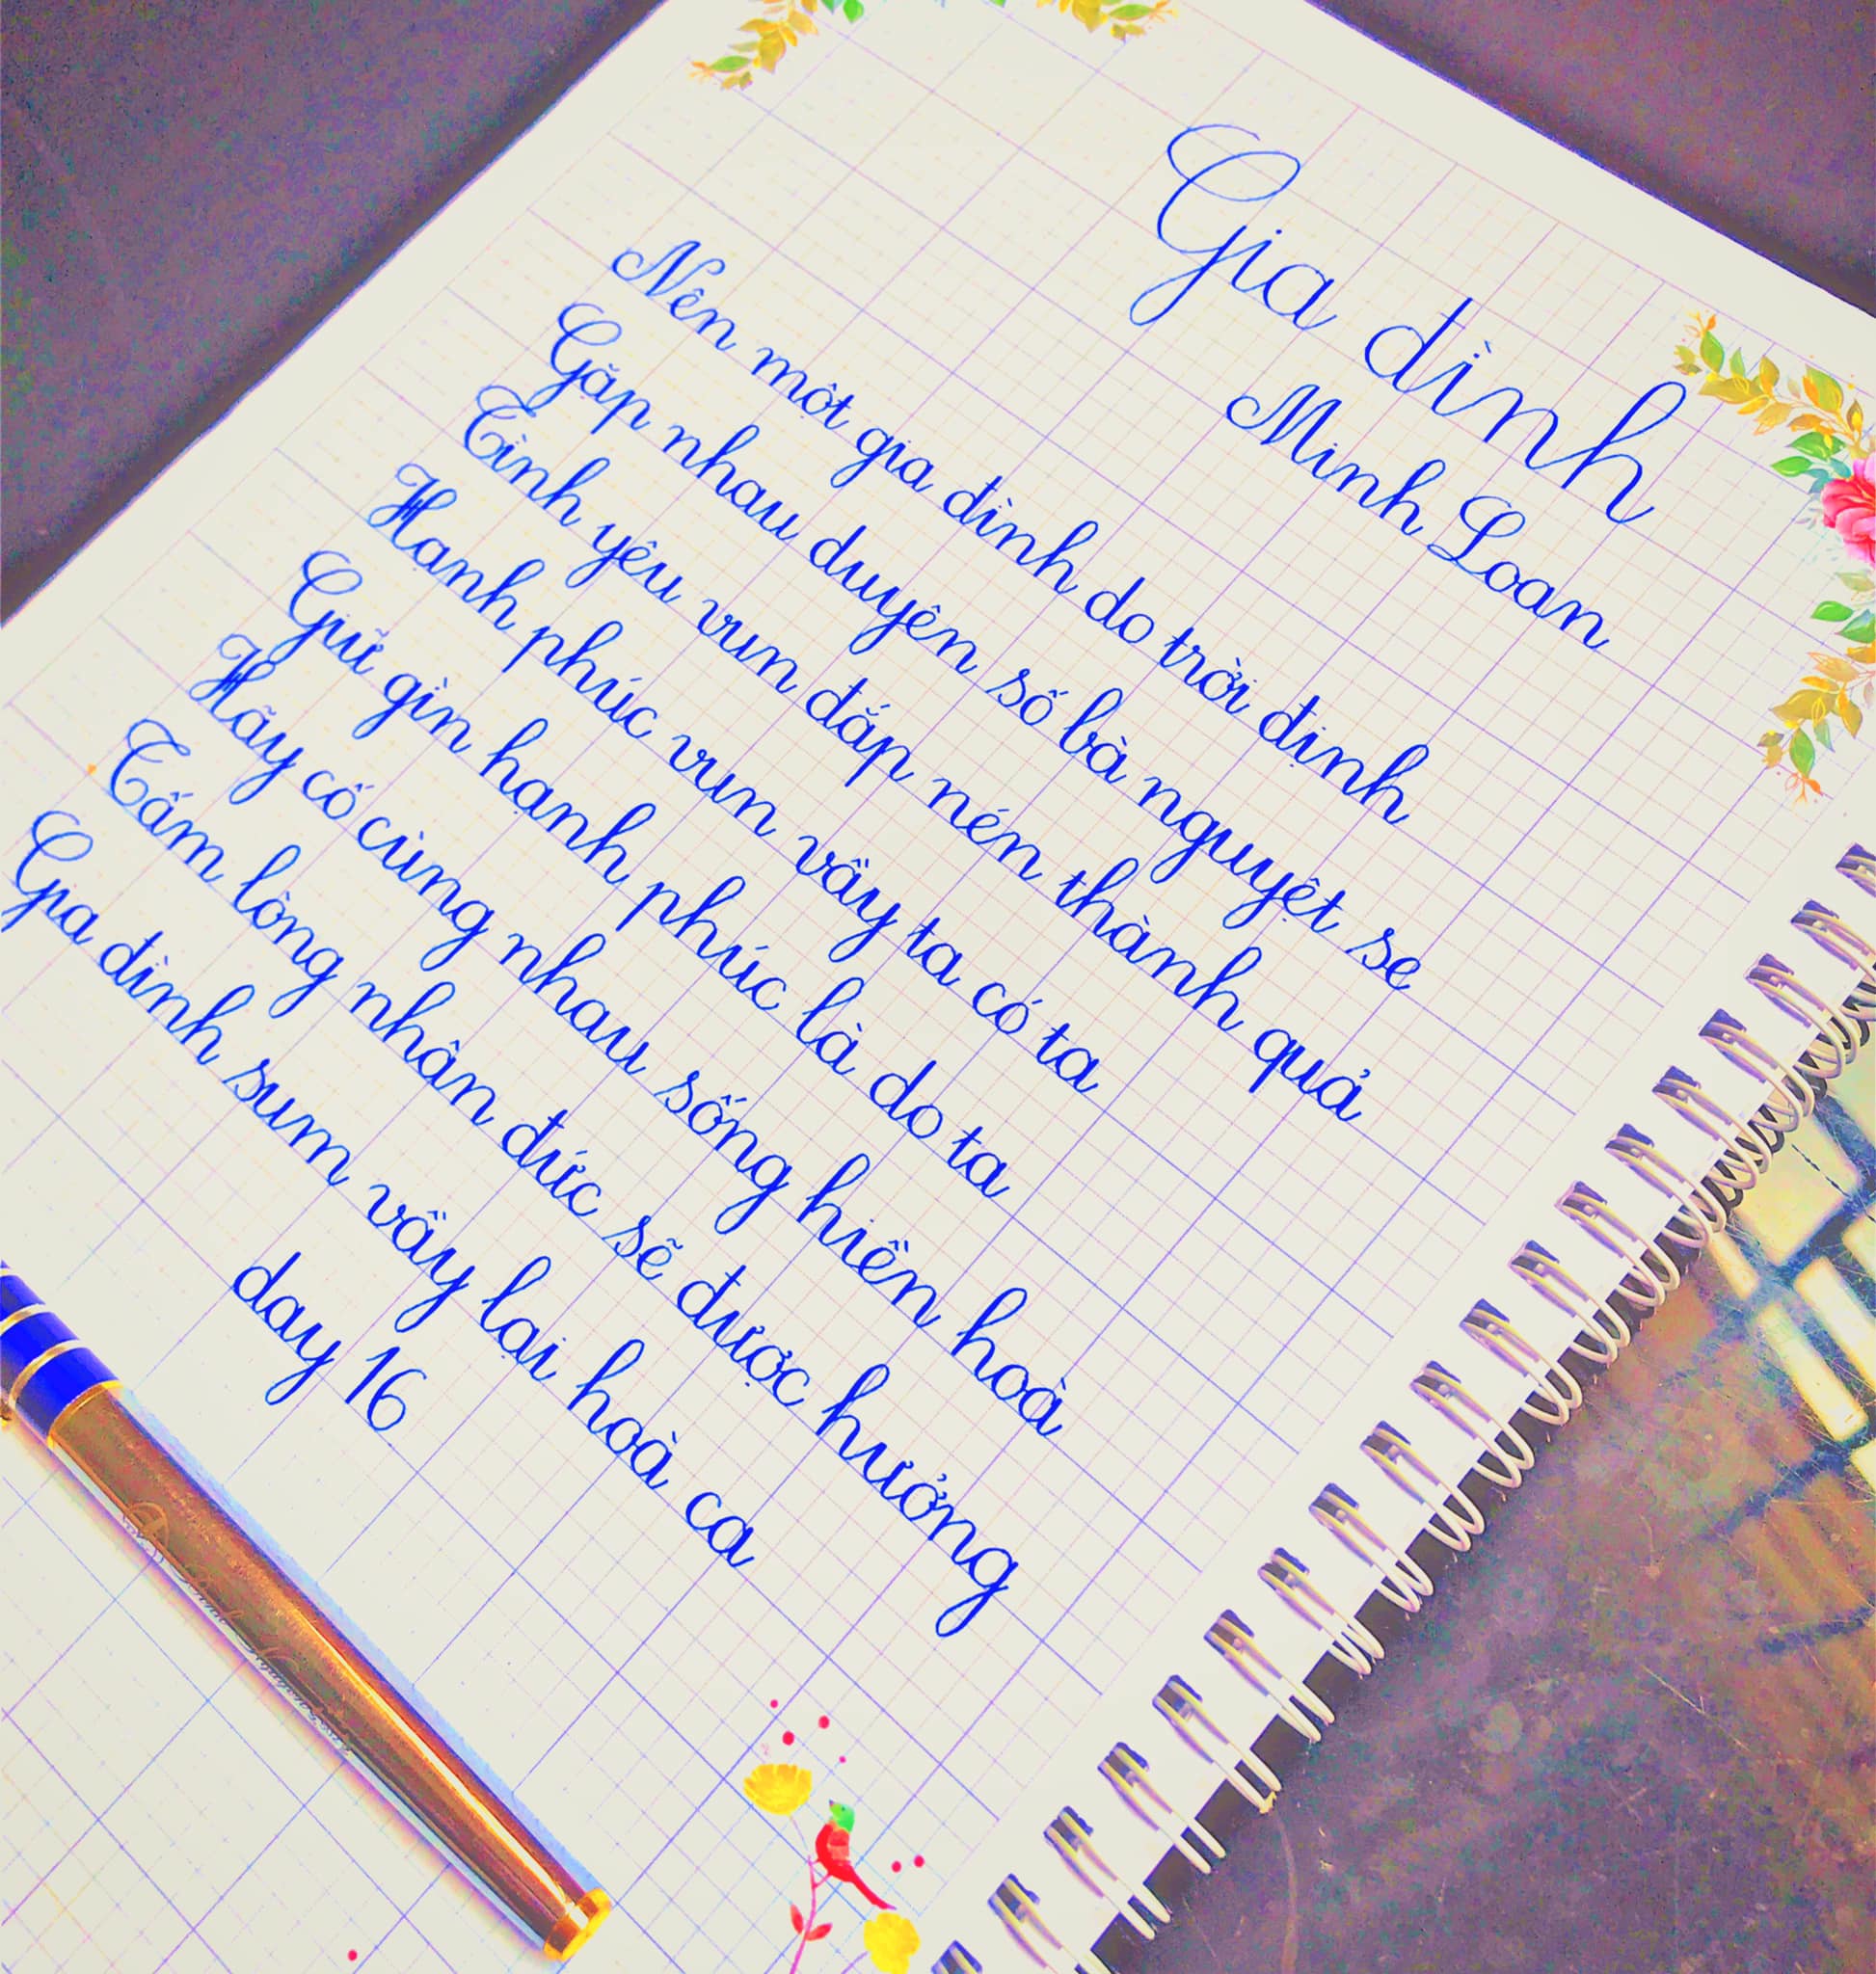 Gia đình
Minh Loan
Nên một gia đình do trời định
Gặp nhau duyên số bà nguyệt se
Tình yêu vun đắp nén thành quả
Hạnh phúc vun vầy ta có ta
Giữ gìn hạnh phúc là do ta
Hãy cố cùng nhau sống hiền hoà
Tấm lòng nhân đức sẽ được hưởng
Gia đình sum vầy lại hoà ca
day 16